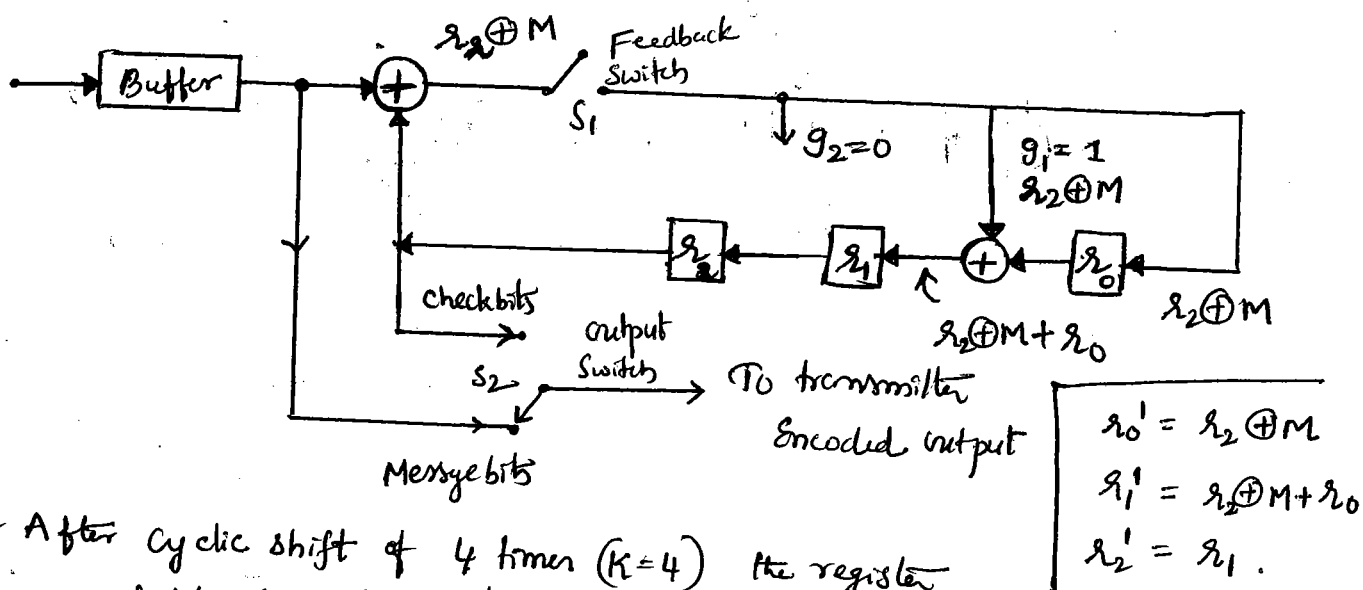 r2⊕M
Feedback
Switch
Buffer
+
S1
g2=0
g1=1
r2⊕M
r2
r1
+
r0
checkbits
output
Switch
r2⊕M+r0
r2⊕M
S2
To transmitter
Encoded output
Messgebits
r0' = r2⊕M
r1' = r2⊕M+r0
r2' = r1.
After cyclic shift of 4 times (K=4) the register